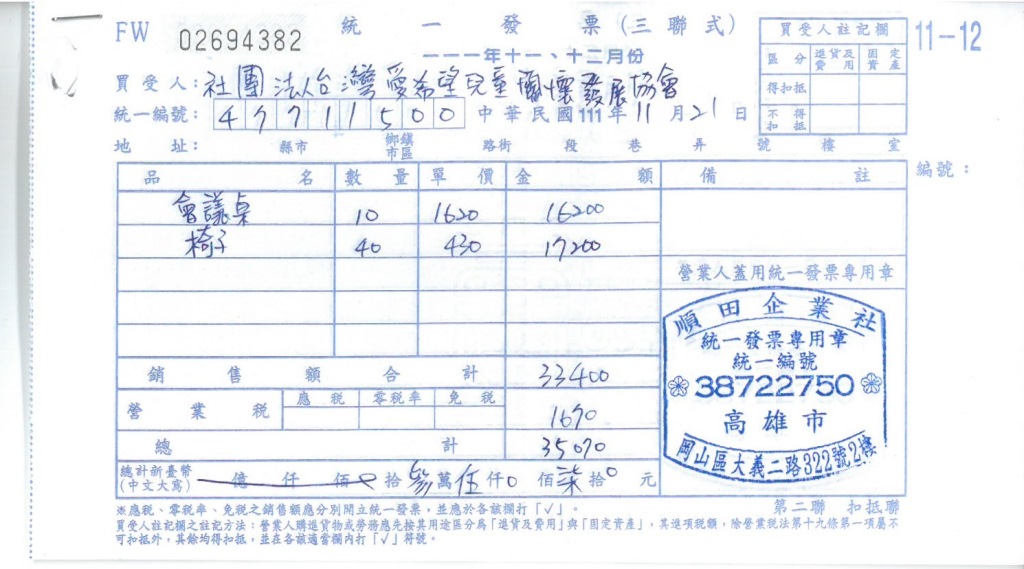 FW 02694382 統一發票(三聯式) 11-12
一一一年十一、十二月份
買受人:社團法人台灣愛希望兒童關懷發展協會
統一編號:47711500 中華民國111年11月21日
地址: 縣市 鄉鎮市區 路街 段 巷 弄 號 樓 室
買受人註記欄
區分 進貨及費用 固定資產
得扣抵
不得扣抵
編號:
品名 數量 單價 金額 備註
會議桌 10 1620 16200
椅子 40 430 17200
營業人蓋用統一發票專用章
銷售額合計 33400
營業稅 應稅 零稅率 免稅 1670
總計 35070
總計新臺幣(中文大寫) 億仟佰0拾參萬伍仟0佰柒拾0元
順田企業社
統一發票專用章
統一編號
38722750
高雄市
岡山區大義二路322號2樓
第二聯 扣抵聯
※應稅、零稅率、免稅之銷售額應分別開立統一發票,並應於各該欄打「✓」。
買受人註記欄之註記方法:營業人購進貨物或勞務應先按其用途區分為「進貨及費用」與「固定資產」,其進項稅額,除營業稅法第十九條第一項屬不
可扣抵外,其餘均得扣抵,並在各該適當欄內打「✓」符號。